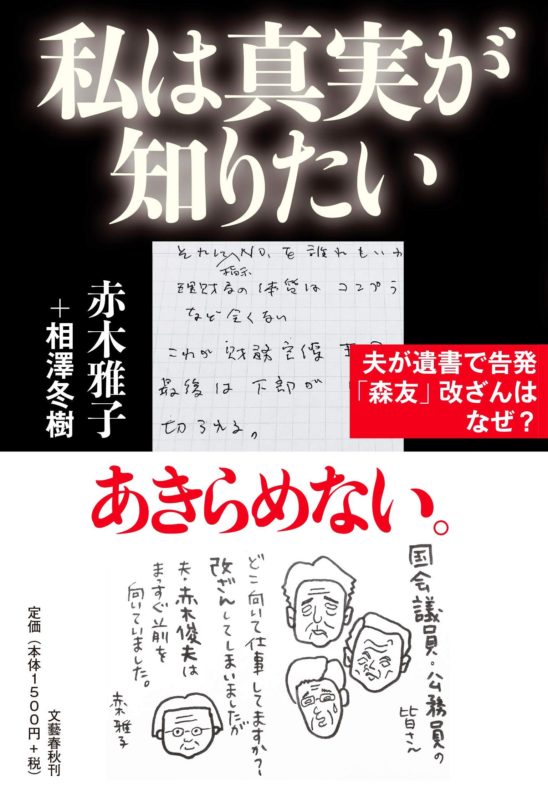 私は真実が
知りたい
赤木雅子
+相澤冬樹
それに NO、を誰れもいわ
指示
理財局の体質はコンプラ
など全くない
これが財務官僚
最後は下部が
切られる。
夫が遺書で告発
「森友」改ざんは
なぜ?
あきらめない。
国会議員・公務員の
皆さん
どこ向いて仕事してますか?
改ざんしてしまいましたが
夫・赤木俊夫は
まっすぐ前を
向いていました。
赤木雅子
定価(本体1500円+税)
文藝春秋刊